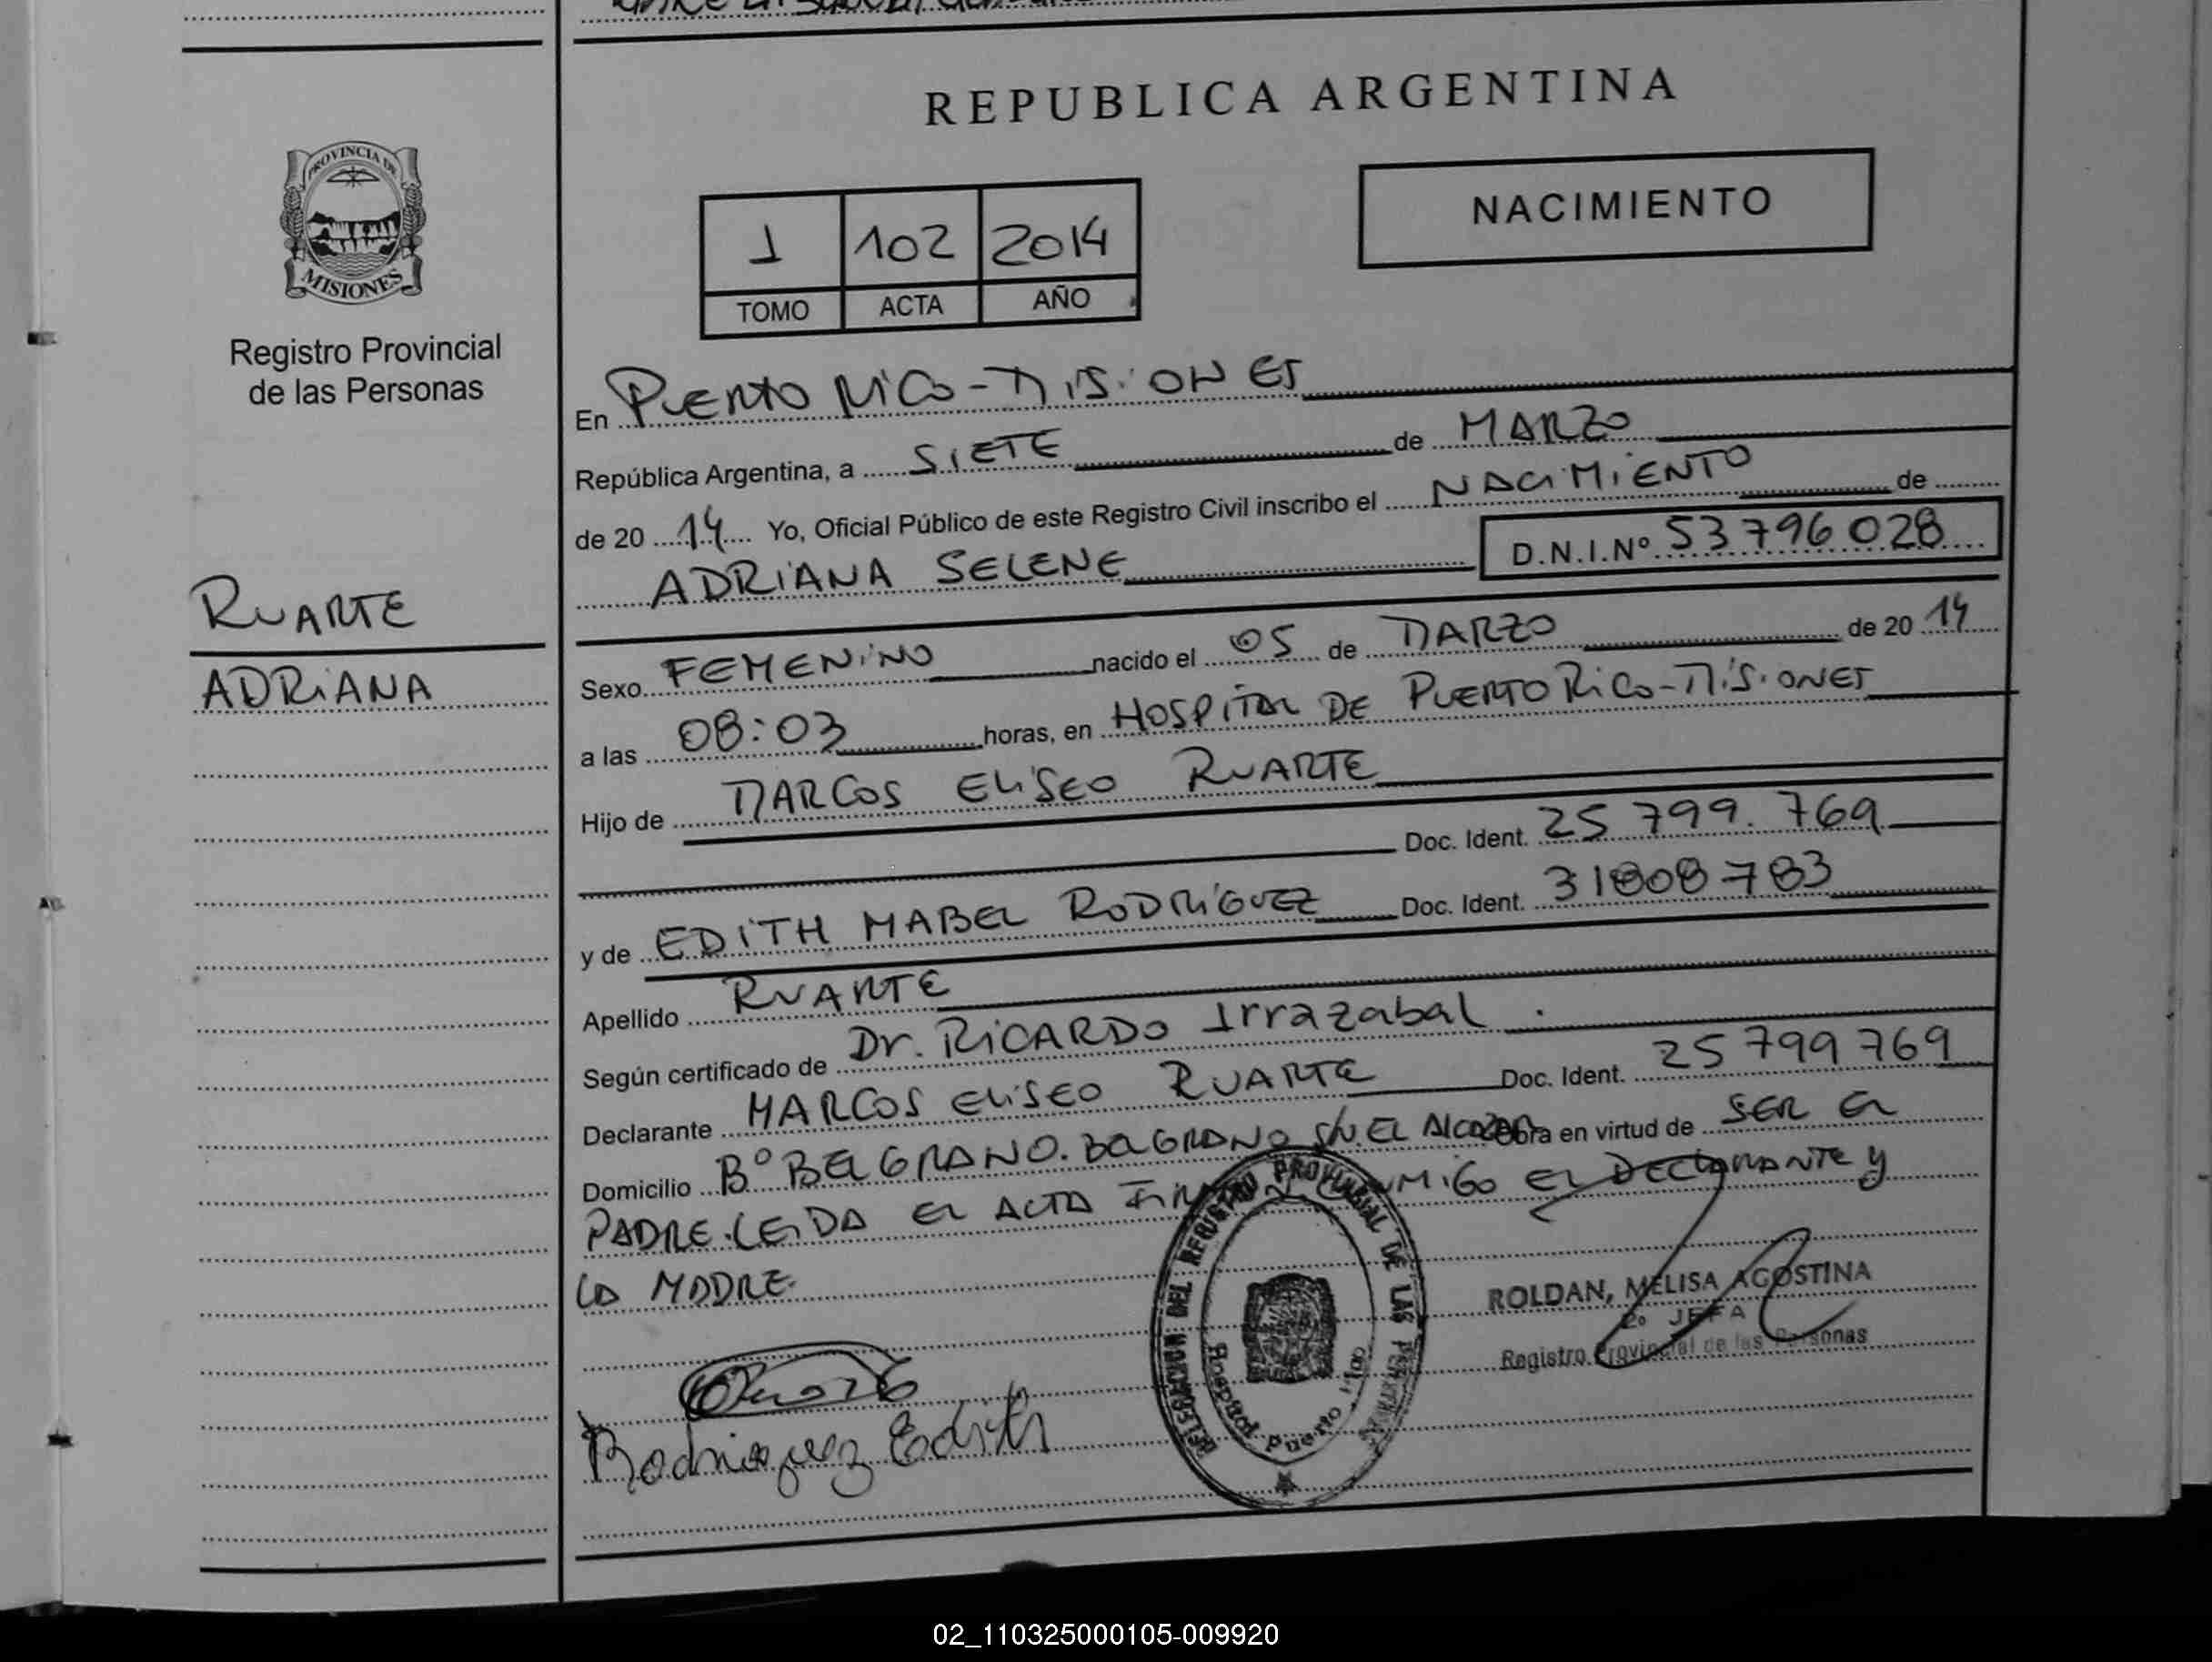 REPUBLICA ARGENTINA
PROVINCIA DE
MISIONES
Registro Provincial
de las Personas
RUARTE
ADRIANA
NACIMIENTO
1 102 2014
TOMO ACTA AÑO
En PUERTO RICO - MISIONES
República Argentina, a SIETE de MARZO
de 20 14 Yo, Oficial Público de este Registro Civil inscribo el NACIMIENTO de
ADRIANA SELENE D.N.I.Nº 53796028
Sexo FEMENINO nacido el 05 de MARZO de 20 14
a las 08:03 horas, en HOSPITAL DE PUERTO RICO - MISIONES
Hijo de MARCOS ELISEO RUARTE
Doc. Ident. 25 799.769
y de EDITH MABEL RODRIGUEZ Doc. Ident. 31808783
Apellido RUARTE
Según certificado de Dr. RICARDO Irrazabal
Declarante MARCOS ELISEO RUARTE Doc. Ident. 25 799 769
Domicilio Bº BELGRANO. BELGRANO S/N EL ALCAZAR Obra en virtud de SER EL
PADRE. LEIDA EL ACTA FIRMAN CONMIGO EL DECLARANTE Y
LA MADRE.
ROLDAN, MELISA AGOSTINA
2º JEFA
Registro Provincial de las Personas
Rodriguez Edith
DELEGACION DEL REGISTRO PROVINCIAL DE LAS PERSONAS
Hospital Puerto Rico
02_110325000105-009920